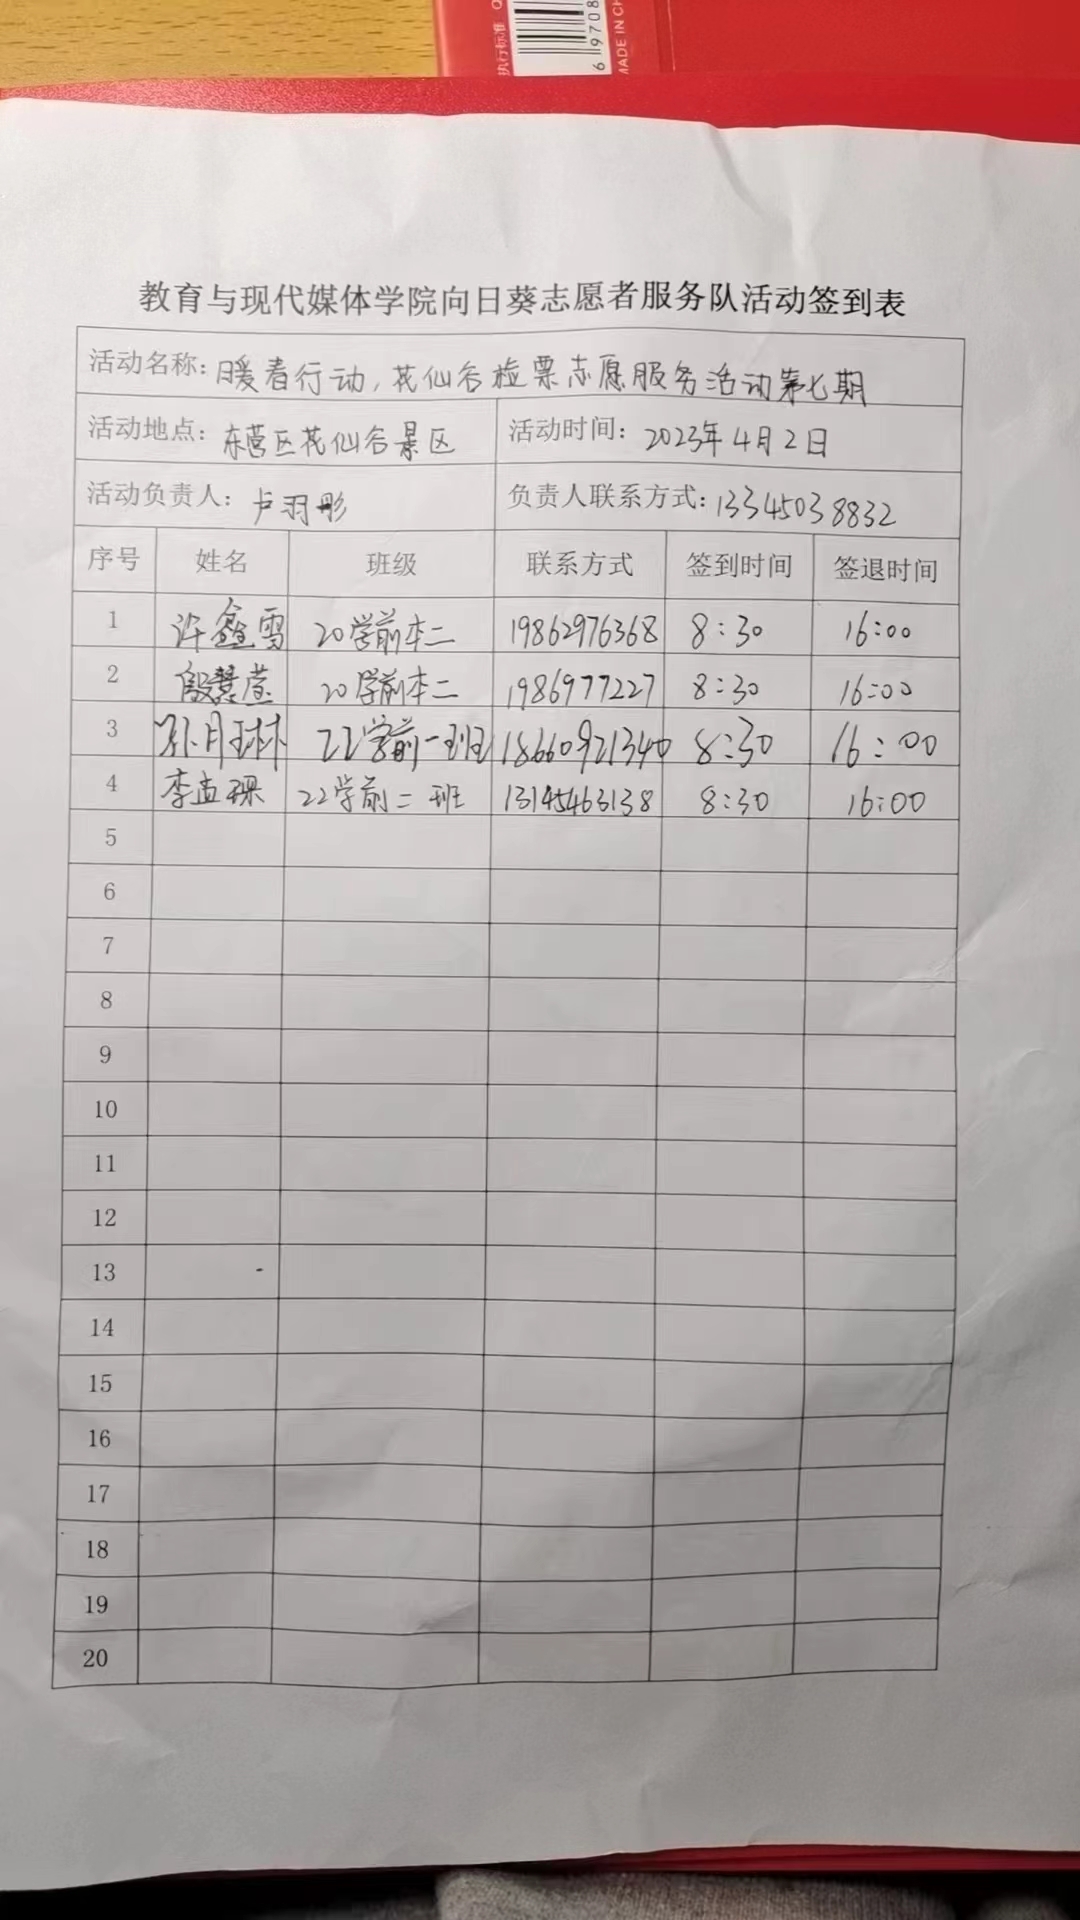 执行标准 Q
6 9708
MADE IN CH
教育与现代媒体学院向日葵志愿者服务队活动签到表
活动名称: 暖春行动,花仙谷检票志愿服务活动第七期
活动地点: 东营区花仙谷景区 活动时间: 2023年4月2日
活动负责人: 卢羽彤 负责人联系方式: 13345038832
序号 姓名 班级 联系方式 签到时间 签退时间
1 许鑫雪 20学前本二 19862976368 8:30 16:00
2 殷慧莹 20学前本二 1986977227 8:30 16:00
3 孙月琳 22学前一班 18660921340 8:30 16:00
4 李孟琛 22学前二班 13145463138 8:30 16:00
5
6
7
8
9
10
11
12
13
14
15
16
17
18
19
20